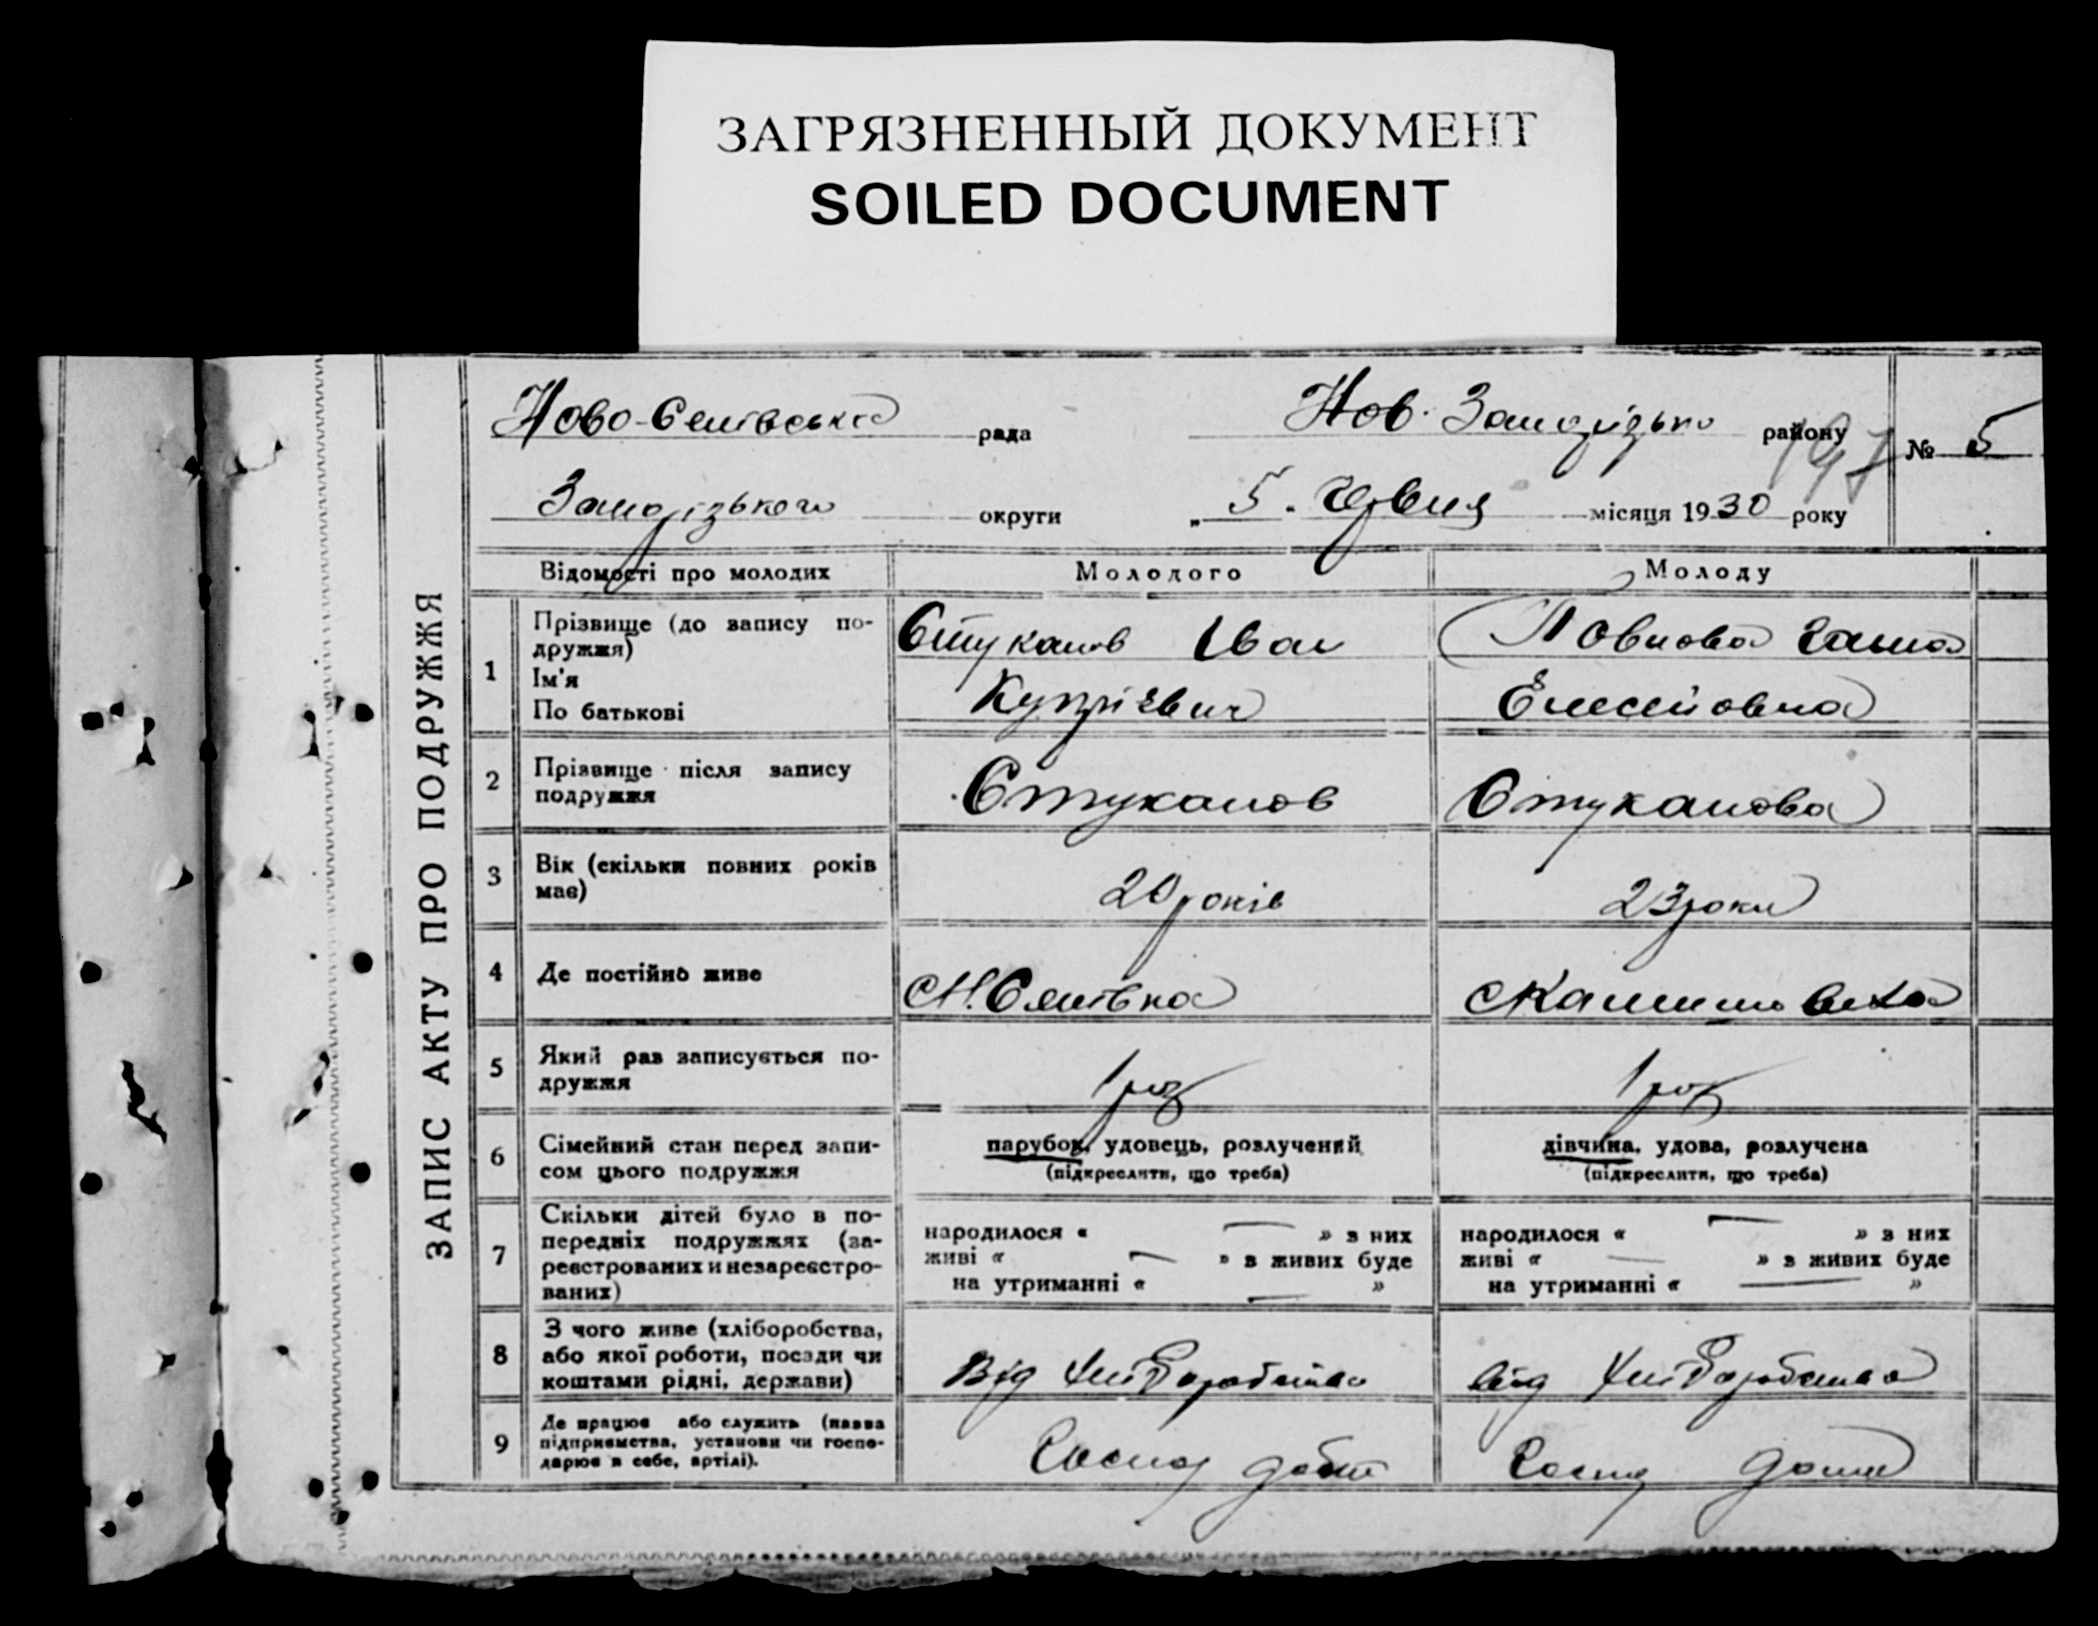 ЗАГРЯЗНЕННЫЙ ДОКУМЕНТ
SOILED DOCUMENT
ЗАПИС АКТУ ПРО ПОДРУЖЖЯ
рада Нов. району № 5
округи „ 5 „ Червня місяця 1930 року
Відомості про молодих Молодого Молоду
1 Прізвище (до запису по-
дружжя)
Ім'я
По батькові
Стуканов Іван
Купріевич
Ганна
Елисеиовна
2 Прізвище після запису
подружжя
Стуканов Стуканова
3 Вік (скільки повних років
має)
20 років 23 роки
4 Де постійно живе
5 Який раз записується по-
дружжя
1 раз 1 раз
6 Сімейний стан перед запи-
сом цього подружжя
парубок, удовець, розлучений
(підкреслити, що треба)
дівчина, удова, розлучена
(підкреслити, що треба)
7 Скільки дітей було в по-
передніх подружжях (за-
реєстрованих и незареєстро-
ваних)
народилося « — » з них
живі « — » з живих буде
на утриманні « — »
народилося « — » з них
живі « — » з живих буде
на утриманні « — »
8 З чого живе (хліборобства,
або якої роботи, посади чи
коштами рідні, держави)
Від Хліборобства від Хліборобства
9 Де працює або служить (назва
підприємства, установи чи госпо-
дарює в себе, артілі).